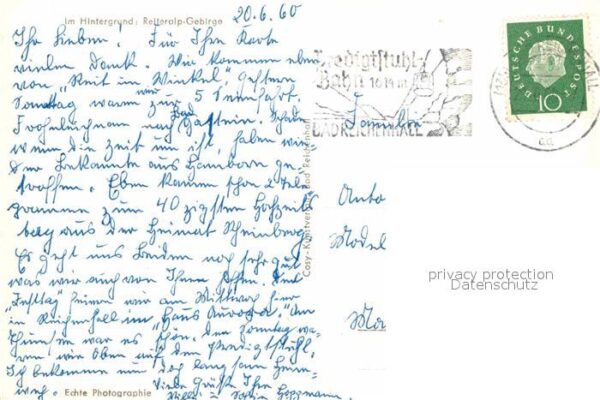 Im Hintergrund: Reiteralp-Gebirge
20.6.60
Ihr Lieben! Für Ihre Karte
vielen Dank. Wir kommen eben
von "Reit im Winkel" gestern
Sonntag waren wir zur 5 Seenfahrt
Frohnleichnam nach Bad Gastein. Schade
wenn die Zeit um ist, haben wir
der Bekannte aus Hamborn ge-
troffen. Eben kamen schon 2 Tele-
gramme zum 40 zigsten Hochzeits
tag aus der Heimat Rheinberg
Es geht uns beiden noch sehr gut
was wir auch von Ihnen hoffen. Den
"Festtag" feiern wir am Mittwoch hier
in Reichenhall im "Haus Aurora". Am
war es schön. Den Sonntag wa-
ren wir oben auf dem Predigtstuhl,
Ich bekomme nun doch langsam Heim-
weh. Viele Grüße Ihre
Willi u.
Echte Photographie
Cosy-Kunstverlag Bad Reichenhall
Predigtstuhl-
Bahn 1614 m
BAD REICHENHALL
DEUTSCHE BUNDESPOST
10
Familie
Anto
Model
Ma
privacy protection
Datenschutz